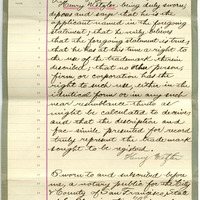 Henry Webster being duly sworn,
deposes and says that he is the
applicant named in the foregoing
statement; that he verily believes
that the foregoing statement is true;
that he has at this time a right to
the use of the trademark therein
described; that no other person,
firm or corporation has the
right to such use, either in the
identical form or in any such
near resemblance thereto as
might be calculated to deceive;
and that the description and
facsimile presented for record
truly represent the trademark
sought to be registered.
Henry
Sworn to and subscribed before
me, a notary public for the City
& County of San Francisco, State